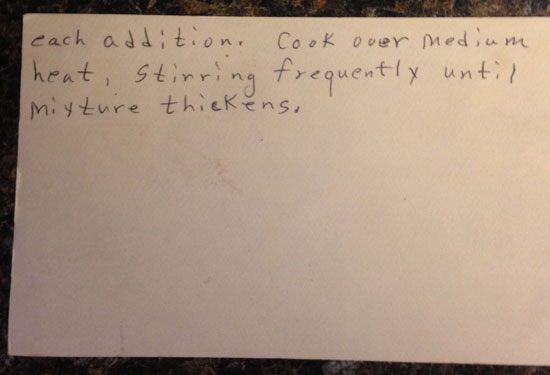 each addition. Cook over medium
heat, stirring frequently until
mixture thickens.